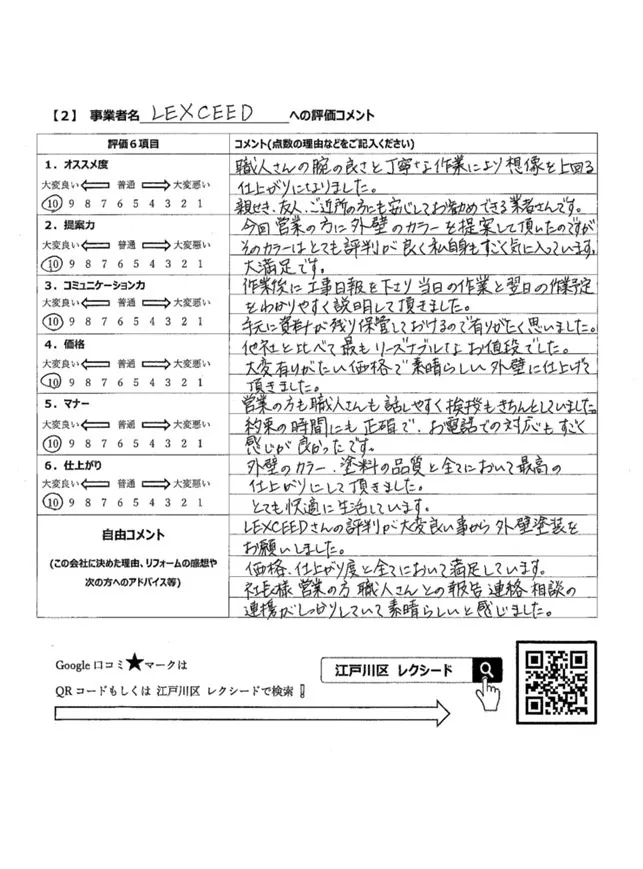 【2】 事業者名 LEXCEED への評価コメント
評価6項目 コメント(点数の理由などをご記入ください)
1．オススメ度
大変良い 普通 大変悪い
10 9 8 7 6 5 4 3 2 1
職人さんの腕の良さと丁寧な作業により想像を上回る
仕上がりになりました。
親せき、友人、ご近所の方にも安心してお勧めできる業者さんです。
2．提案力
大変良い 普通 大変悪い
10 9 8 7 6 5 4 3 2 1
今回営業の方に外壁のカラーを提案して頂いたのですが
そのカラーはとても評判が良く私自身もすごく気に入っています。
大満足です。
3．コミュニケーション力
大変良い 普通 大変悪い
10 9 8 7 6 5 4 3 2 1
作業後に工事日報を下さり当日の作業と翌日の作業予定
をわかりやすく説明して頂きました。
手元に資料が残り保管しておけるので有りがたく思いました。
4．価格
大変良い 普通 大変悪い
10 9 8 7 6 5 4 3 2 1
他社と比べて最もリーズナブルなお値段でした。
大変有りがたい価格で素晴らしい外壁に仕上げて
頂きました。
5．マナー
大変良い 普通 大変悪い
10 9 8 7 6 5 4 3 2 1
営業の方も職人さんも話しやすく挨拶もきちんとしていました。
約束の時間にも正確で、お電話での対応もすごく
感じが良かったです。
6．仕上がり
大変良い 普通 大変悪い
10 9 8 7 6 5 4 3 2 1
外壁のカラー、塗料の品質と全てにおいて最高の
仕上がりにして頂きました。
とても快適に生活しています。
自由コメント
(この会社に決めた理由、リフォームの感想や
次の方へのアドバイス等)
LEXCEEDさんの評判が大変良い事から外壁塗装を
お願いしました。
価格、仕上がり度と全てにおいて満足しています。
社長様 営業の方 職人さんとの報告 連絡 相談の
連携がしっかりしていて素晴らしいと感じました。
Google口コミ★マークは
QRコードもしくは 江戸川区 レクシードで検索！
江戸川区 レクシード